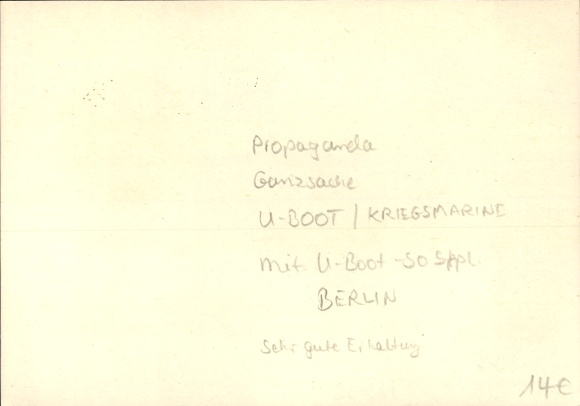 Propaganda
Ganzsache
U-BOOT / KRIEGSMARINE
mit U-Boot-SoStpl.
BERLIN
Sehr gute Erhaltung
14€